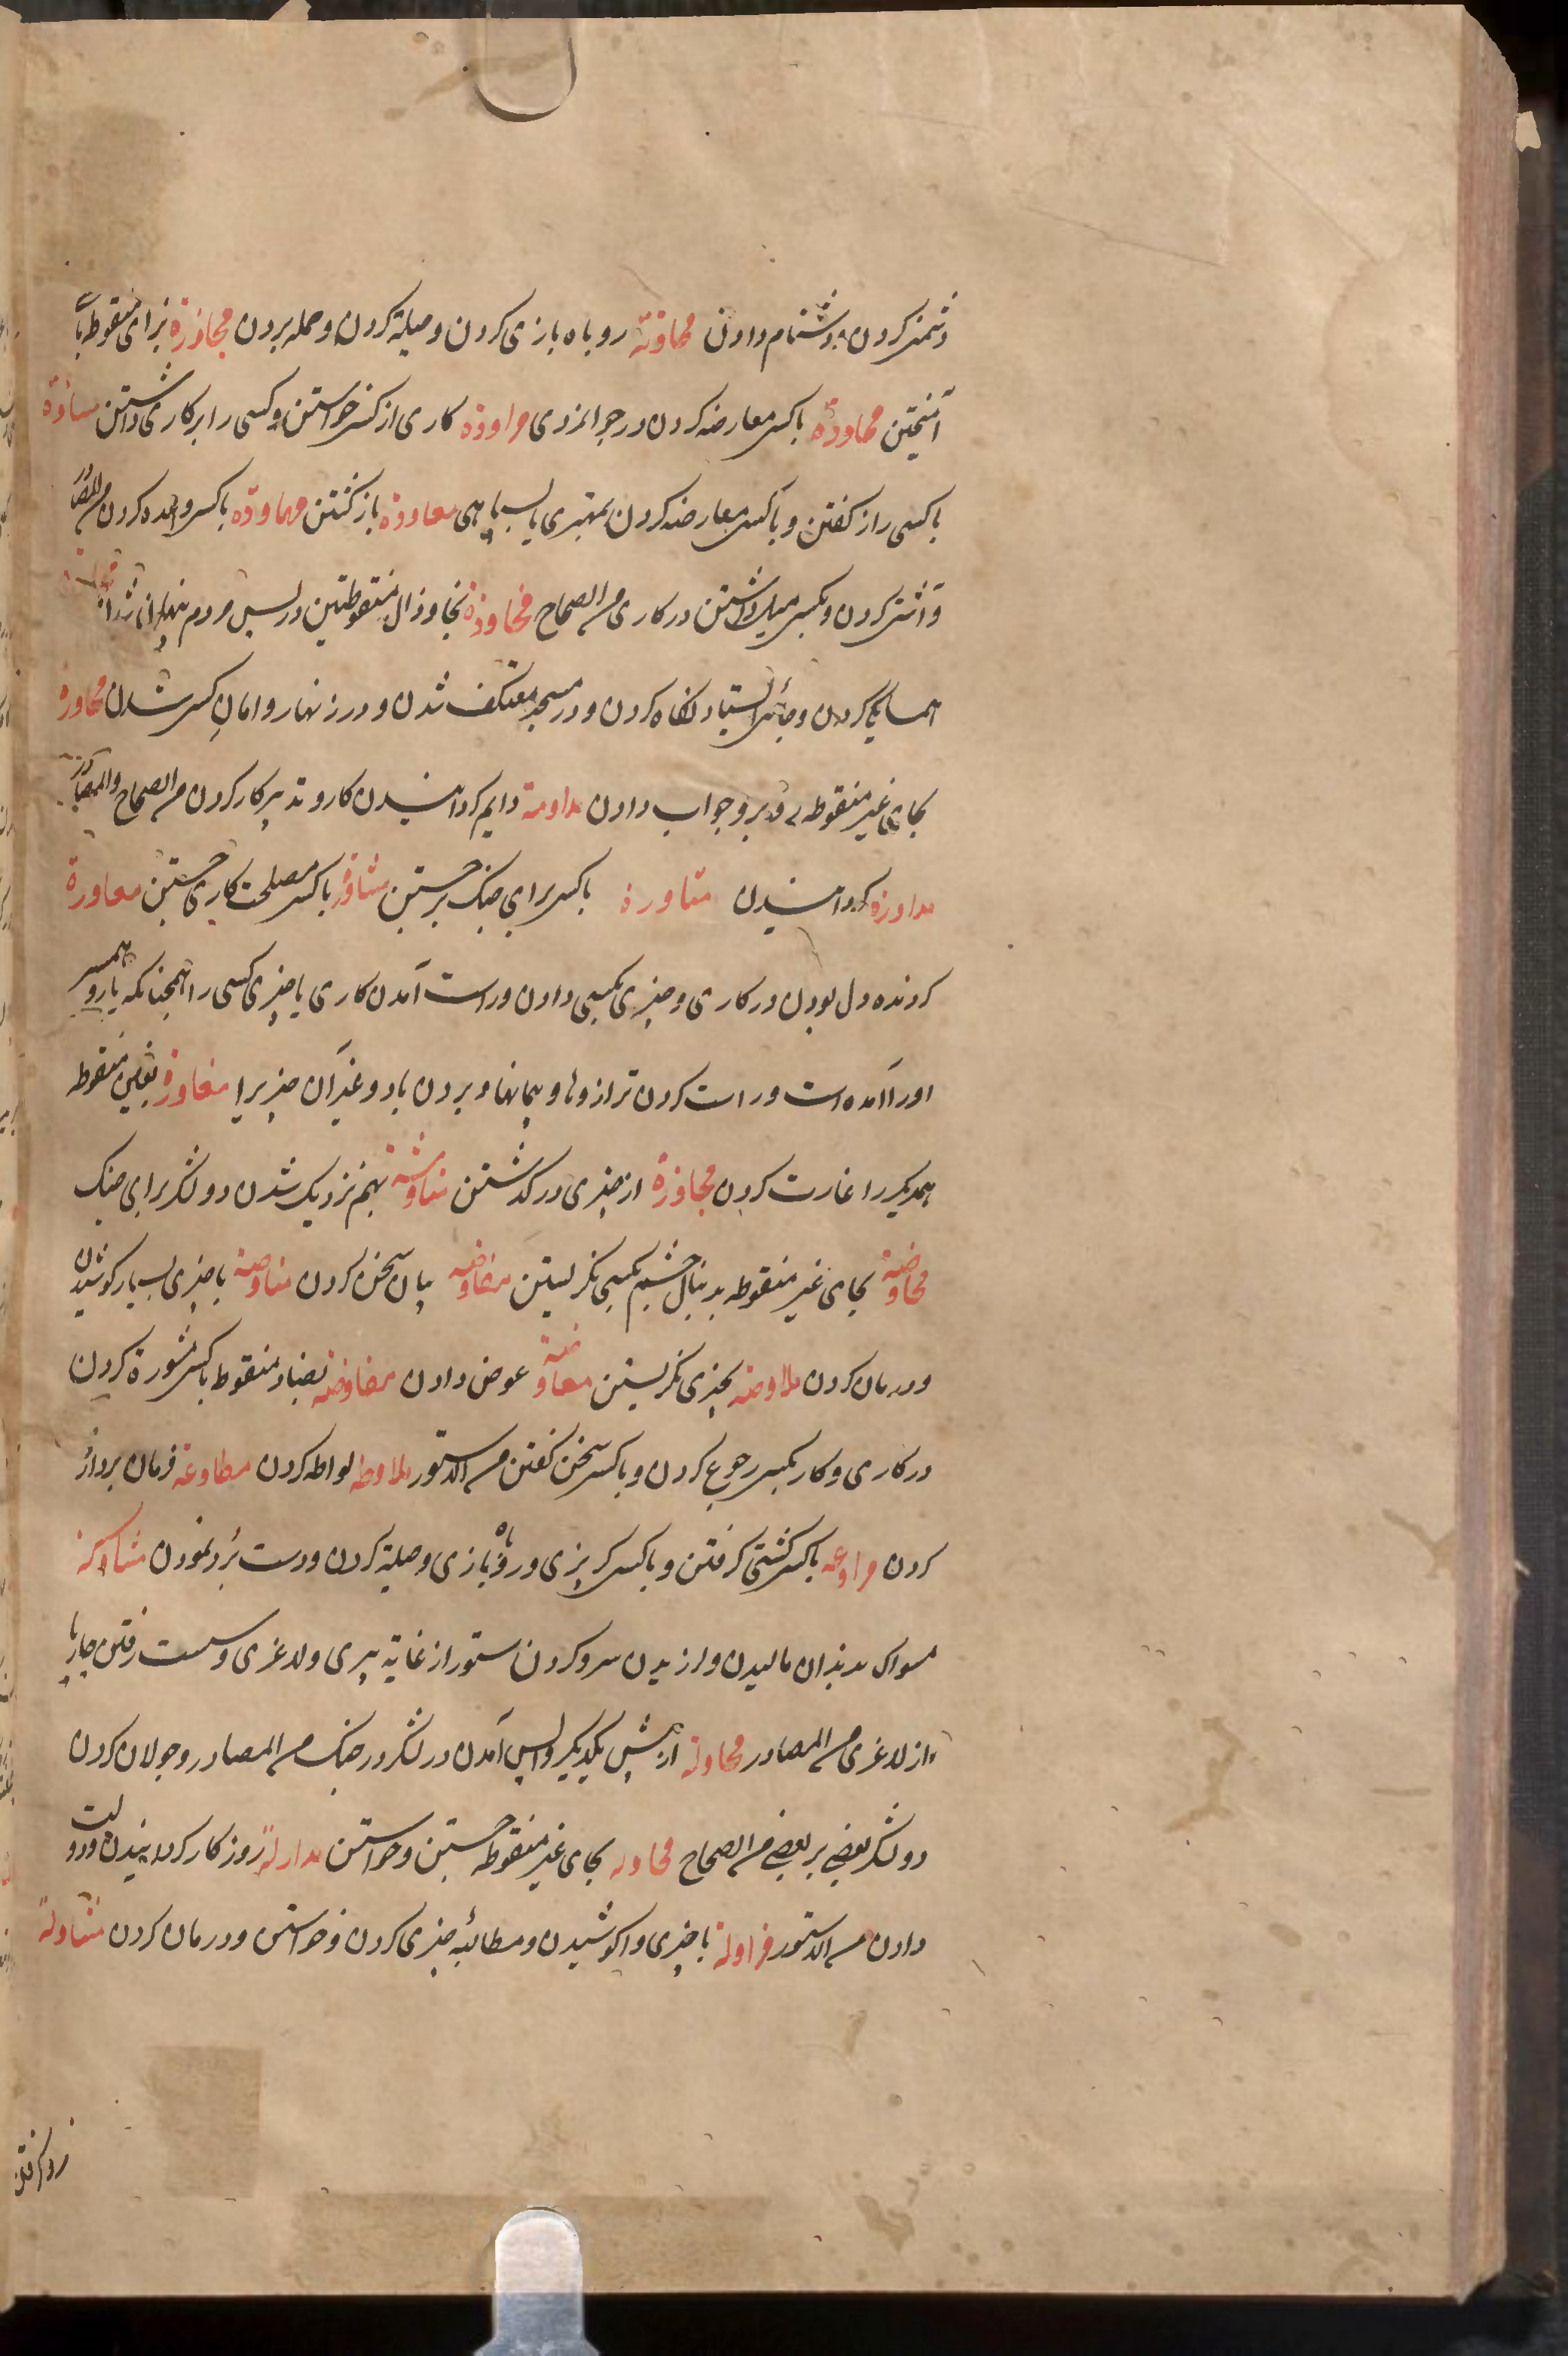 دشمنی کردن و دشنام دادن محاوته روباه بازی کردن و حیله کردن و حمله بردن مجاوزة بزای منقوط با
آمیختن مجاودة باکسی معارضه کردن در جوانمردی مراودة کاری از کسی خواستن و کسی را بر کاری داشتن مساودة
باکسی راز کفتن و باکسی معارضه کردن بمهتری یا بسیاهی معاودة باز کشتن مهاودة باکسی واعده کردن من المصادر
و آشتی کردن و بکسی میل داشتن در کاری من الصحاح مخاوذة بخا و ذال منقوطتین در پس مردم پنهانی شدن
همسایکی کردن و معتکف شدن و در زنهار و امان کسی شدن محاورة
بحای غیر منقوطه و جواب دادن مداومة دایم کردانیدن کار و تدبیر کار کردن من الصحاح والمصادر
مداورة کردانیدن مثاورة باکسی برای جنک برجستن مشاورة باکسی مصلحت کاری جستن معاورة
کردنده دل بودن در کاری و چیزی بکسی دادن و راست آمدن کاری یا چیزی کسی را همچنانکه یار و همسر
او را آمده است و راست کردن ترازوها و پیمانها و بردن باد و غیر آن چیزیرا مغاورة بغین منقوطه
همدیکر را غارت کردن مجاوزة از چیزی در کذشتن مناوشة بهم نزدیک شدن دو لشکر برای جنک
محاوصة بحای غیر منقوطه بدنبال چشم بکسی نکریستن مفاوصة بیان سخن کردن مناوصة با چیزی بسیار کوشیدن
و درمان کردن ملاوصة بچیزی نکریستن معاوضة عوض دادن مفاوضة بضاد منقوط باکسی مشورة کردن
در کاری و کار بکسی رجوع کردن و باکسی سخن کفتن من الدستور ملاوطة لواطه کردن مطاوعة فرمان برداری
کردن مراوغة باکسی کشتی کرفتن و باکسی کریزی و روباه بازی و حیلة کردن و دست برد نمودن مساوکة
مسواک بدندان مالیدن و لرزیدن سر و کردن ستور از غایة پیری و لاغری و سست رفتن چارپا
از لاغری من المصادر مجاولة از پیش یکدیکر واپس آمدن در لشکر در جنک من المصادر و جولان کردن
دو لشکر بعضی بر بعضی من الصحاح محاولة بحای غیر منقوطه جستن و خواستن مداولة روزکار کردانیدن و دولت
دادن من الدستور مزاولة با چیزی واکوشیدن و مطالبه چیزی کردن و خواستن و درمان کردن مشاولة